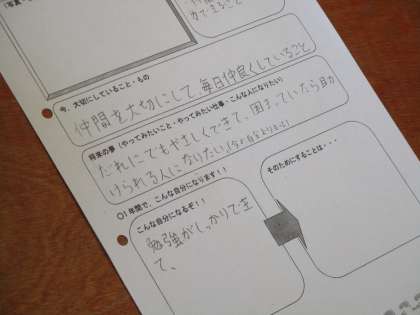 今、大切にしていること・もの
仲間を大切にして、毎日仲良くしていること
将来の事（やってみたいこと・やってみたい仕事・こんな人になりたい）
だれにでもやさしくできて、困まっていたら助
けられる人になりたい
〇1年間で、こんな自分になります！！
こんな自分になるぞ！！
そのためにすることは・・・
勉強がしっかりでき
て、